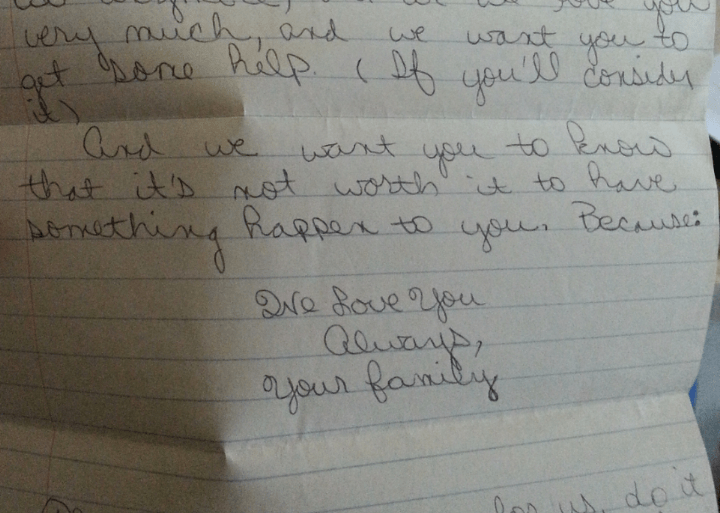 love you
very much, and we want you to
get some help. (If you'll consider
it)
And we want you to know
that it's not worth it to have
something happen to you. Because:
We Love You
Always,
Your family
for us, do it